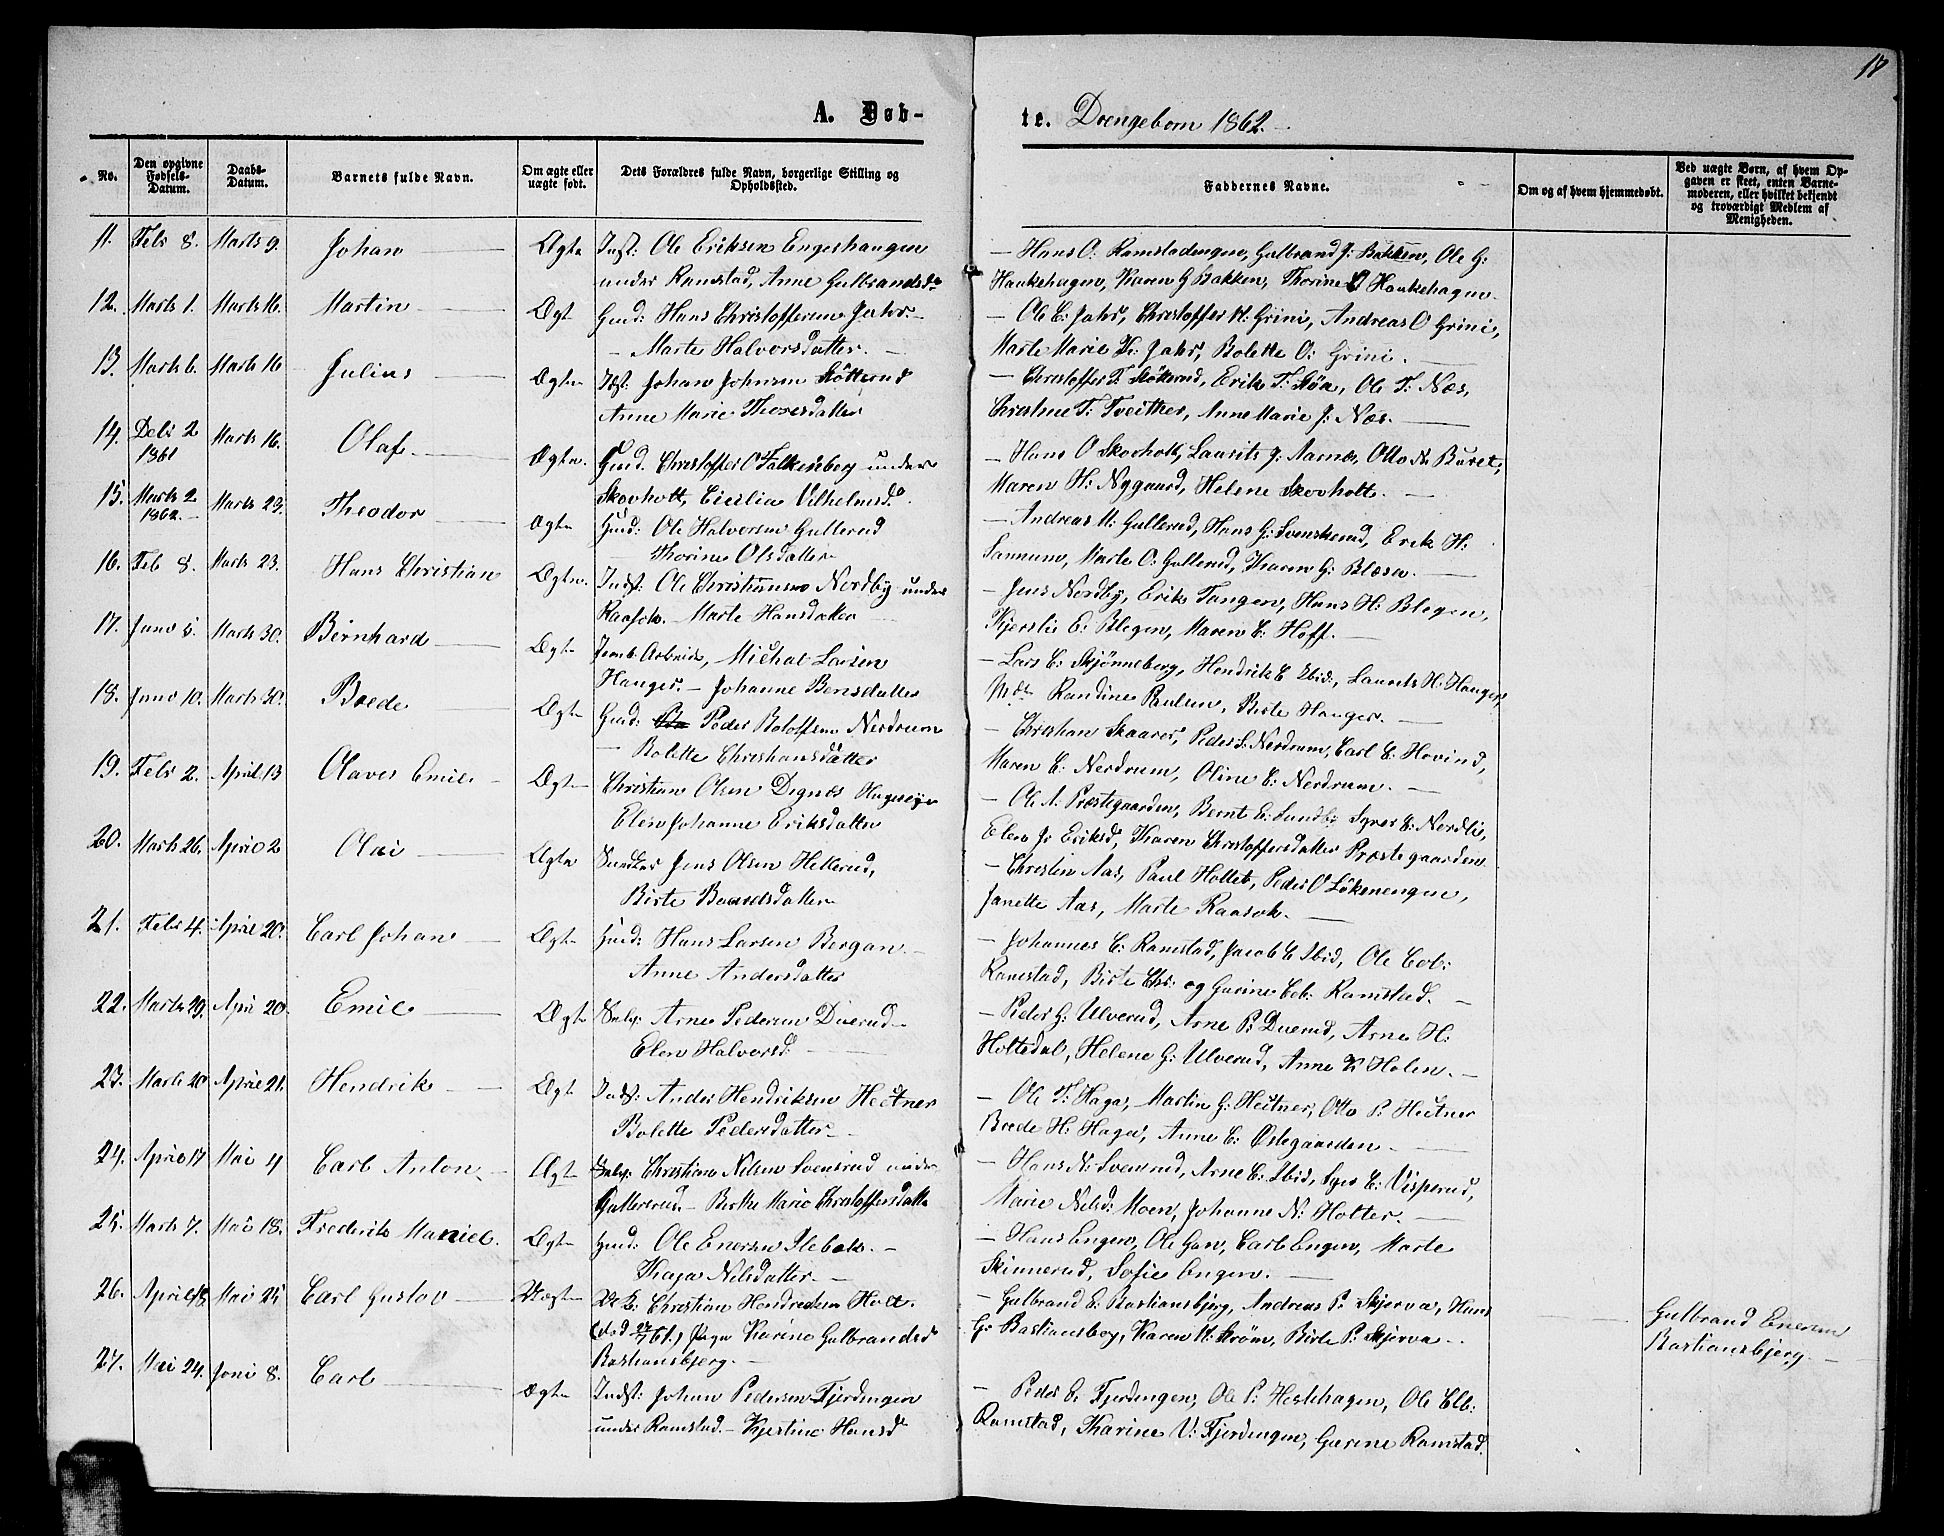 17
A. Døb-
te. Drengebørn 1862.
No.
Den opgivne Fødsels-Datum.
Daabs-Datum.
Barnets fulde Navn.
Om ægte eller uægte født.
Dets Forældres fulde Navn, borgerlige Stilling og Opholdssted.
Faddernes Navne.
Om og af hvem hjemmedøbt.
Ved uægte Børn, af hvem Opgaven er skeet, enten Barnemoderen, eller hvilket bekjendt og troværdigt Medlem af Menigheden.
11. Feb 8. Marts 9. Johan Ægte Inst: Ole Eriksen Engeshaugen
under Ramstad, Anne Gulbrandsd.
— Hans O: Ramstadengen, Gulbrand J: Bakken, Ole G:
Haukehagen, Karen G Bakken, Thorine O Haukehagen
12. Marts 1. Marts 16. Martin Ægte Gmd: Hans Christoffersen Jahr
— Marte Halvorsdatter.
— Ole C: Jahr, Christoffer H: Grini, Andreas O Grini,
Marte Marie Jahr, Bolette O: Grini.
13. Marts 6. Marts 16 Julius Ægte Inst: Johan Johnsen Støtterud
Anne Marie Thoresdatter
— Christoffer T: Støtterud, Erik T: Støa, Ole T: Næs,
Christine T: Tveither, Anne Marie J: Næs.
14. Debr 2 1861 Marts 16. Olaf Ægte. Gmd. Christoffer O Falkenberg under
Skovholt, Cicilia Vilhelmsd.
— Hans O Skovholt, Laurits J: Aarnæs, Otto N: Buret,
Maren H: Nygaard, Helene Skovholt.
15. Marts 2 1862. Marts 23. Theodor Ægte Gmd: Ole Halvorsen Gullerud
Thorine Olsdatter
— Andreas H: Gullerud, Hans G: Svenskerud, Erik H:
Sannum, Marte O: Gullerud, Karen G: Blæsa.
16. Feb 8. Marts 23. Hans Christian Ægte. Indst: Ole Christiansen Nordby under
Raasok. Marte Hansdatter
— Jens Nordby, Erik Tangen, Hans H: Blegen,
Kjersti E: Blegen, Maren E: Hoff.
17. Janu 5. Marts 30. Bernhard Ægte Jernb. Arbeid, Michal Larsen
Hanger. — Johanne Berntsdatter
— Lars E: Skjønneberg, Hendrik E Ibid:, Laurits H: Hanger,
Randine Paulsen, Berte Hanger.
18. Janu 10. Marts 30. Brede Ægte Gmd: Peder Bolofsen Nerdrum
— Bolette Christiansdatter
— Christian Skaarer, Peder L: Nerdrum, Carl E: Hovind,
Maren E: Nerdrum, Oline E: Nerdrum.
19. Febr 2. April 13 Olaves Emil Ægte Christian Olsen Degnæs
Elen Johanne Eriksdatter
— Ole A: Præstegaarden, Bernt E: Lundby Syver E: Nordli,
Elen J: Eriksd, Karen Christoffersdatter Præstegaarden
20. Marts 26. April 2 Olai Ægte Jens Olsen Hellerud,
Birte
— Christin Aas, Paul Hollet, Peder O Løkenengen,
Janette Aas, Marte Raasok.
21. Febr 4. April 20. Carl Johan Ægte Gmd: Hans Larsen Bergan.
Anne Andersdatter
— Johannes C: Ramstad, Jacob C Ibid, Ole
Ramstad, Birte Chr: og Gurine Ramstad.
22. Marts 29. April 20. Emil Ægte Selv: Arne Pedersen Duerud
Elen Halvorsd.
— Peder G: Ulverud, Arne P: Duerud, Arne H:
Holtedal, Helene G: Ulverud, Anne Holen.
23. Marts 20 April 21. Hendrik Ægte Indst: Andes Hendriksen Heitner
Bolette Pedersdatter
— Ole T: Haga, Martin G: Heitner, Otto P: Heitner
Brede H: Haga, Anne E: Østegaarden.
24. April 17 Mai 4 Carl Anton Ægte Selv: Christian Nilsen Svensrud under
Gullererud — Birthe Marie Christoffersdatte
— Hans N: Svensrud, Arne C: Ibid, Syver E: Visperud,
Marie Nilsd: Moen, Johanne N: Holter.
25. Marts 7. Mai 18. Frederik Ægte Gmd: Ole Enersen Slebak.
Kaja Nilsdatter.
— Hans Engen, Ole Gan, Carl Engen, Marte
Skinnerud, Sofie Engen.
26. April 18 Mai 25 Carl Gustav Uægte Christian Hendriksen Holt.
Karine Gulbrandsd
Bastiansbjerg.
— Gulbrand E: Bastiansbjerg, Andreas P: Skjerva, Hans
G: Bastiansberg, Karen H: Strøm, Birte P: Skjerva
Gulbrand Enersen
Bastiansbjerg.
27. Mai 24. Juni 8. Carl Ægte Indst: Johan Pedersen Fjerdingen
under Ramstad. — Kjestine Hansd
— Peder E: Fjerdingen, Ole P: Hestehagen, Ole Elb:
Ramstad, Karine V: Fjerdingen, Gurine Ramstad.